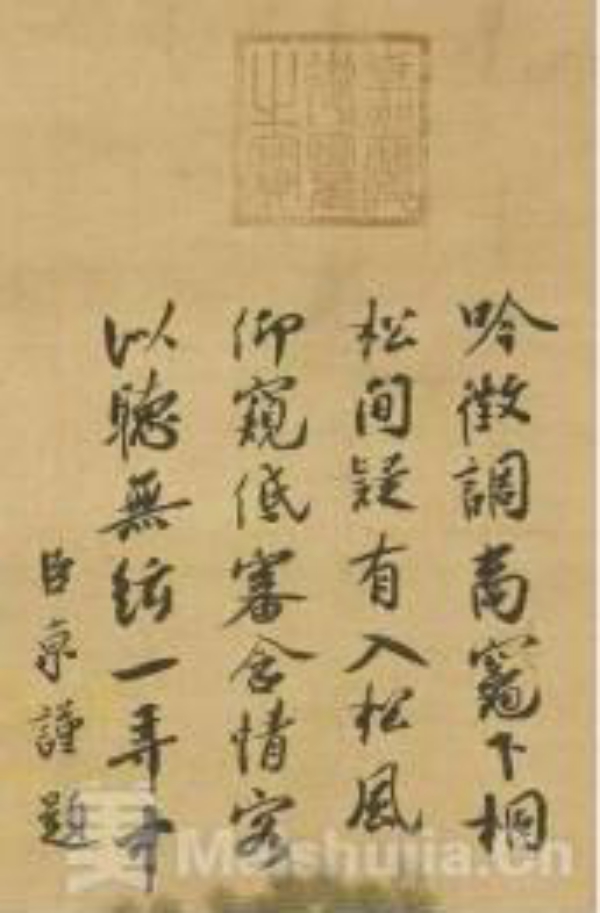 吟徵調商竈下桐
松間疑有入松風
仰窺低審含情客
以聽無絃一弄中
臣京謹題
Meishujia.Cn